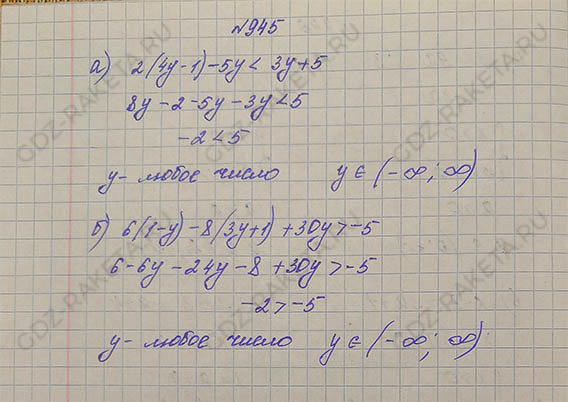 №945
а) 2(4y-1)-5y < 3y+5
8y-2-5y-3y<5
-2<5
y- любое число y∈(-∞; ∞)
б) 6(1-y)-8(3y+1)+30y>-5
6-6y-24y-8+30y>-5
-2>-5
y- любое число y∈(-∞; ∞)
GDZ-RAKETA.RU
GDZ-RAKETA.RU
GDZ-RAKETA.RU
GDZ-RAKETA.RU
GDZ-RAKETA.RU
GDZ-RAKETA.RU